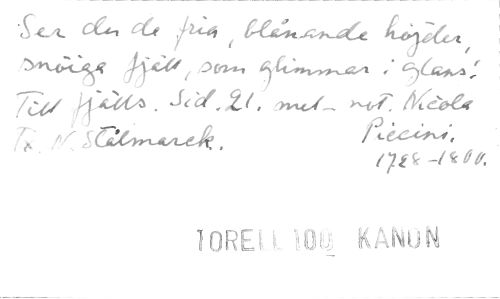 Ser du de fria, blånande höjder,
snöiga fjäll, som glimmar i glans!
Till fjälls. Sid. 21. mel- not. Nicola
Tx. N. Stålmarck. Piccini.
1728-1800.
TORELL 100 KANON